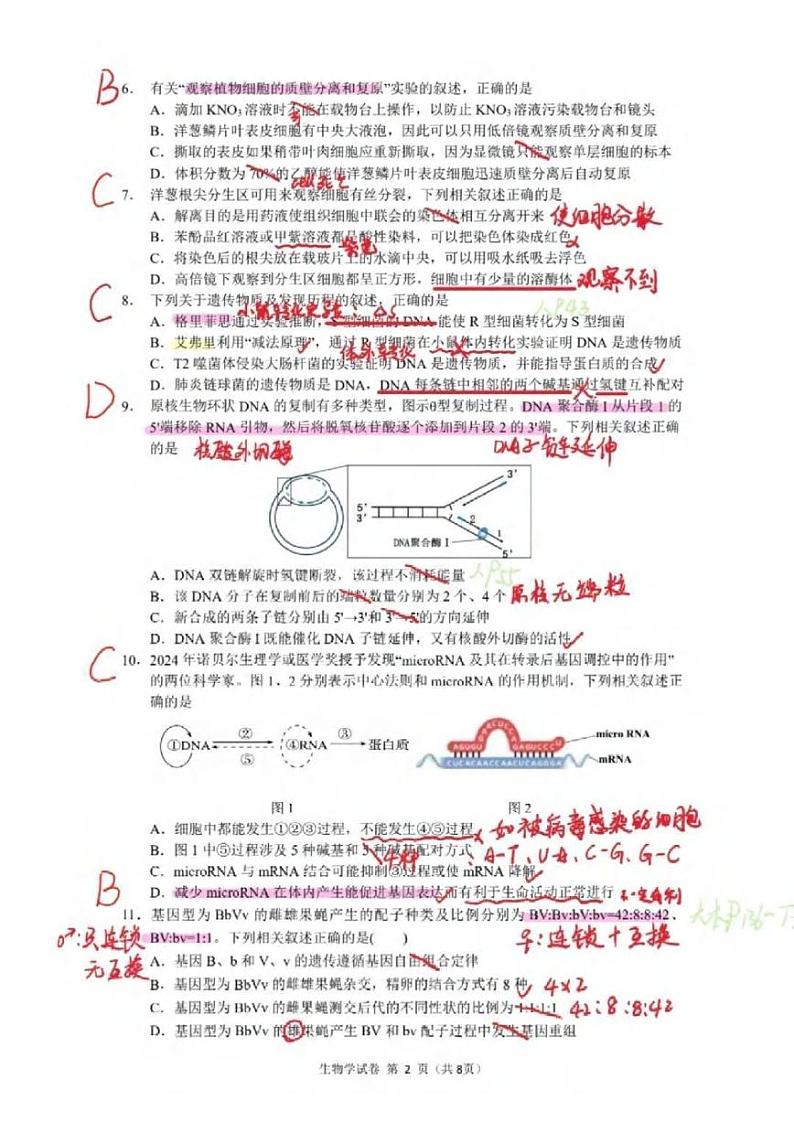 B
6. 有关“观察植物细胞的质壁分离和复原”实验的叙述，正确的是
A．滴加 KNO₃ 溶液时不能在载物台上操作，以防止 KNO₃ 溶液污染载物台和镜头
B．洋葱鳞片叶表皮细胞有中央大液泡，因此可以只用低倍镜观察质壁分离和复原
C．撕取的表皮如果稍带叶肉细胞应重新撕取，因为显微镜只能观察单层细胞的标本
D．体积分数为 70%的乙醇能使洋葱鳞片叶表皮细胞迅速质壁分离后自动复原
cell死亡
C
7. 洋葱根尖分生区可用来观察细胞有丝分裂，下列相关叙述正确的是
A．解离目的是用药液使组织细胞中联会的染色体相互分离开来 使细胞分散
B．苯酚品红溶液或甲紫溶液都是酸性染料，可以把染色体染成红色
紫色
C．将染色后的根尖放在载玻片上的水滴中央，可以用吸水纸吸去浮色
D．高倍镜下观察到分生区细胞都呈正方形，细胞中有少量的溶酶体 观察不到
C
8. 下列关于遗传物质及发现历程的叙述，正确的是
人P43
A．格里菲思通过实验推断，S 型细菌的 DNA 能使 R 型细菌转化为 S 型细菌
B．艾弗里利用“减法原理”，通过 R 型细菌在小鼠体内转化实验证明 DNA 是遗传物质
体外转化
C．T2 噬菌体侵染大肠杆菌的实验证明 DNA 是遗传物质，并能指导蛋白质的合成
D．肺炎链球菌的遗传物质是 DNA，DNA 每条链中相邻的两个碱基通过氢键互补配对
D
9. 原核生物环状 DNA 的复制有多种类型，图示θ型复制过程。DNA 聚合酶 I 从片段 1 的
5'端移除 RNA 引物，然后将脱氧核苷酸逐个添加到片段 2 的 3'端。下列相关叙述正确
的是 核酸外切酶 DNA子链延伸
3'
5'
3'
2
1
DNA聚合酶 I
5'
A．DNA 双链解旋时氢键断裂，该过程不消耗能量 人P55
B．该 DNA 分子在复制前后的端粒数量分别为 2 个、4 个 原核无端粒
C．新合成的两条子链分别由 5'→3'和 3'→5'的方向延伸
D．DNA 聚合酶 I 既能催化 DNA 子链延伸，又有核酸外切酶的活性
C
10. 2024 年诺贝尔生理学或医学奖授予发现“microRNA 及其在转录后基因调控中的作用”
的两位科学家。图 1、2 分别表示中心法则和 microRNA 的作用机制，下列相关叙述正
确的是
①DNA ② ⑤ ④RNA ③ 蛋白质
micro RNA
mRNA
图 1 图 2
A．细胞中都能发生①②③过程，不能发生④⑤过程 如被病毒感染的细胞
B．图 1 中⑤过程涉及 5 种碱基和 3 种碱基配对方式 4种：A-T、U-A、C-G、G-C
C．microRNA 与 mRNA 结合可能抑制③过程或使 mRNA 降解
D．减少 microRNA 在体内产生能促进基因表达而有利于生命活动正常进行 不一定有利
B
11. 基因型为 BbVv 的雌雄果蝇产生的配子种类及比例分别为 BV:Bv:bV:bv=42:8:8:42、
BV:bv=1:1。下列相关叙述正确的是( )
♂:只连锁
无互换
♀:连锁＋互换
A．基因 B、b 和 V、v 的遗传遵循基因自由组合定律
B．基因型为 BbVv 的雌雄果蝇杂交，精卵的结合方式有 8 种 4×2
C．基因型为 BbVv 的雌果蝇测交后代的不同性状的比例为 1:1:1:1 42:8:8:42
D．基因型为 BbVv 的雄果蝇产生 BV 和 bv 配子过程中发生基因重组
生物学试卷 第 2 页（共 8页）